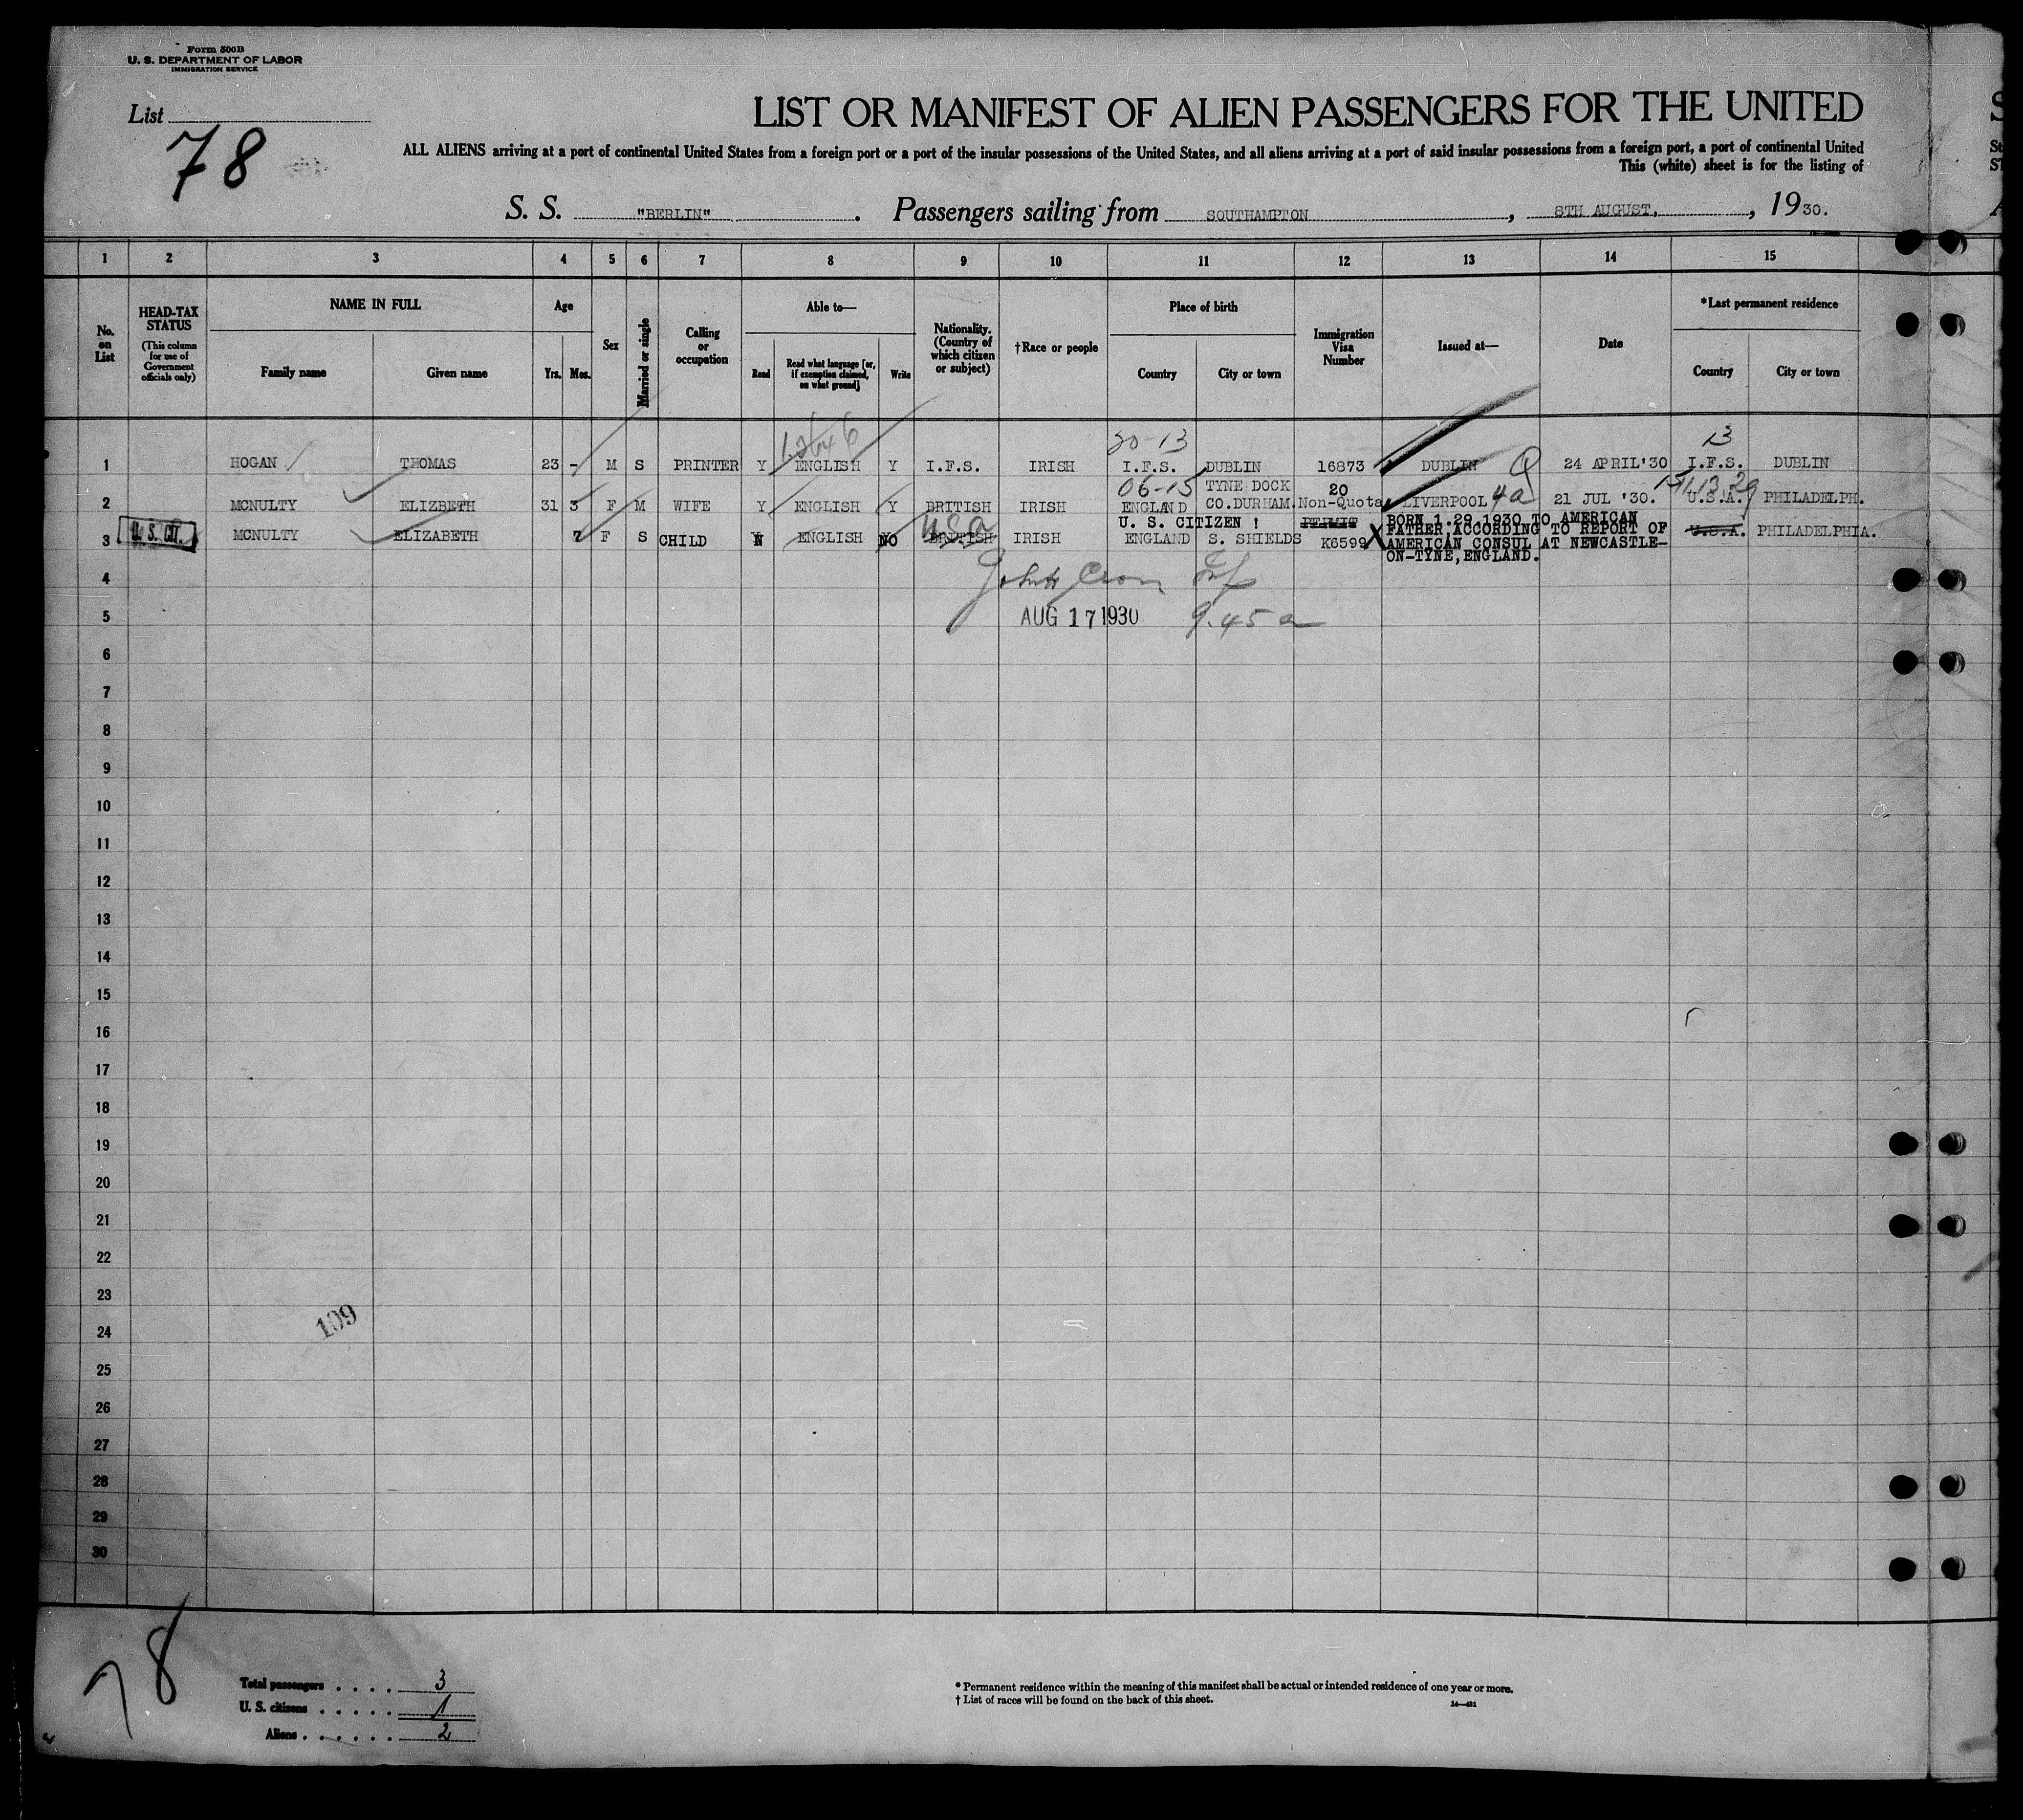 Form 500B
U. S. DEPARTMENT OF LABOR
IMMIGRATION SERVICE
List
78
LIST OR MANIFEST OF ALIEN PASSENGERS FOR THE UNITED
ALL ALIENS arriving at a port of continental United States from a foreign port or a port of the insular possessions of the United States, and all aliens arriving at a port of said insular possessions from a foreign port, a port of continental United
This (white) sheet is for the listing of
S. S. "BERLIN" . Passengers sailing from SOUTHAMPTON , 8TH AUGUST, , 1930.
1 2 3 4 5 6 7 8 9 10 11 12 13 14 15
No. on List
HEAD-TAX STATUS
(This column for use of Government officials only)
NAME IN FULL
Family name
Given name
Age
Yrs. Mos.
Sex
Married or single
Calling or occupation
Able to—
Read
Read what language [or, if exemption claimed, on what ground]
Write
Nationality. (Country of which citizen or subject)
†Race or people
Place of birth
Country
City or town
Immigration Visa Number
Issued at—
Date
*Last permanent residence
Country
City or town
30-13 13
1 HOGAN THOMAS 23 - M S PRINTER Y ENGLISH Y I.F.S. IRISH I.F.S. DUBLIN 16873 DUBLIN Q 24 APRIL'30 I.F.S. DUBLIN
06-15 TYNE DOCK 20
2 MCNULTY ELIZBETH 31 3 F M WIFE Y ENGLISH Y BRITISH IRISH ENGLAND CO.DURHAM. Non-Quota LIVERPOOL 4a 21 JUL '30. U.S.A. PHILADELPH.
U. S. CIT. U.S.A. U. S. CITIZEN ! PERMIT BORN 1.29.1930 TO AMERICAN
FATHER, ACCORDING TO REPORT OF
3 MCNULTY ELIZABETH 7 F S CHILD N ENGLISH NO BRITISH IRISH ENGLAND S. SHIELDS K6599 X AMERICAN CONSUL AT NEWCASTLE-
U.S.A. PHILADELPHIA.
ON-TYNE, ENGLAND.
4
5 AUG 17 1930 9.45 a
6
7
8
9
10
11
12
13
14
15
16
17
18
19
20
21
22
23
109
24
25
26
27
28
29
30
78
Total passengers . . . . 3
U. S. citizens . . . . . 1
Aliens . . . . . . 2
* Permanent residence within the meaning of this manifest shall be actual or intended residence of one year or more.
† List of races will be found on the back of this sheet.